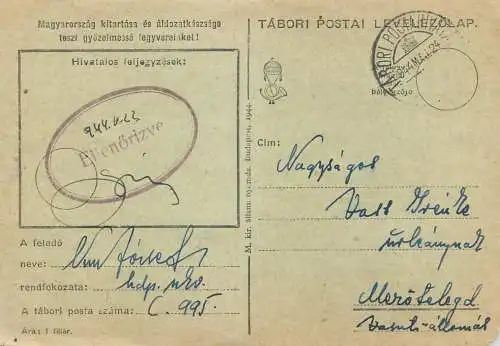 Magyarország kitartása és áldozatkészsége
teszi győzelmessé fegyvereinket!
Hivatalos feljegyzések:
944.V.23
Ellenőrizve
A feladó
neve: József
rendfokozata: hdp.
A tábori posta száma: C. 995.
Ára: 1 fillér.
M. kir. állam. nyomda, Budapest, 1944.
TÁBORI POSTAI LEVELEZŐLAP.
TÁBORI POSTA
bélyegzője
Cím:
Nagyságos
Vass Irénke
úrleánynak
Mezőtelegd
Vasút-állomás